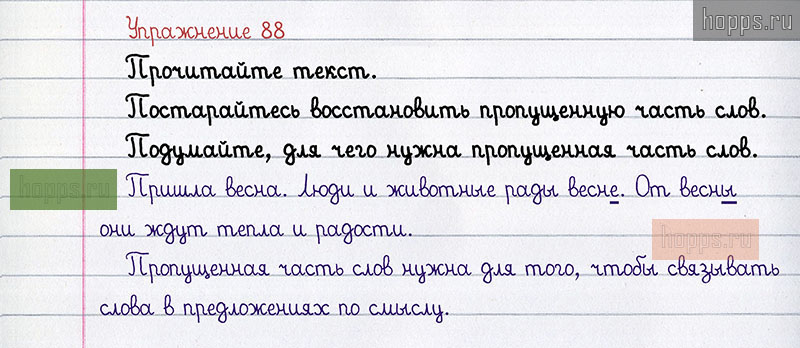 hopps.ru
Упражнение 88
Прочитайте текст.
Постарайтесь восстановить пропущенную часть слов.
Подумайте, для чего нужна пропущенная часть слов.
hopps.ru
Пришла весна. Люди и животные рады весне. От весны
они ждут тепла и радости.
hopps.ru
Пропущенная часть слов нужна для того, чтобы связывать
слова в предложениях по смыслу.